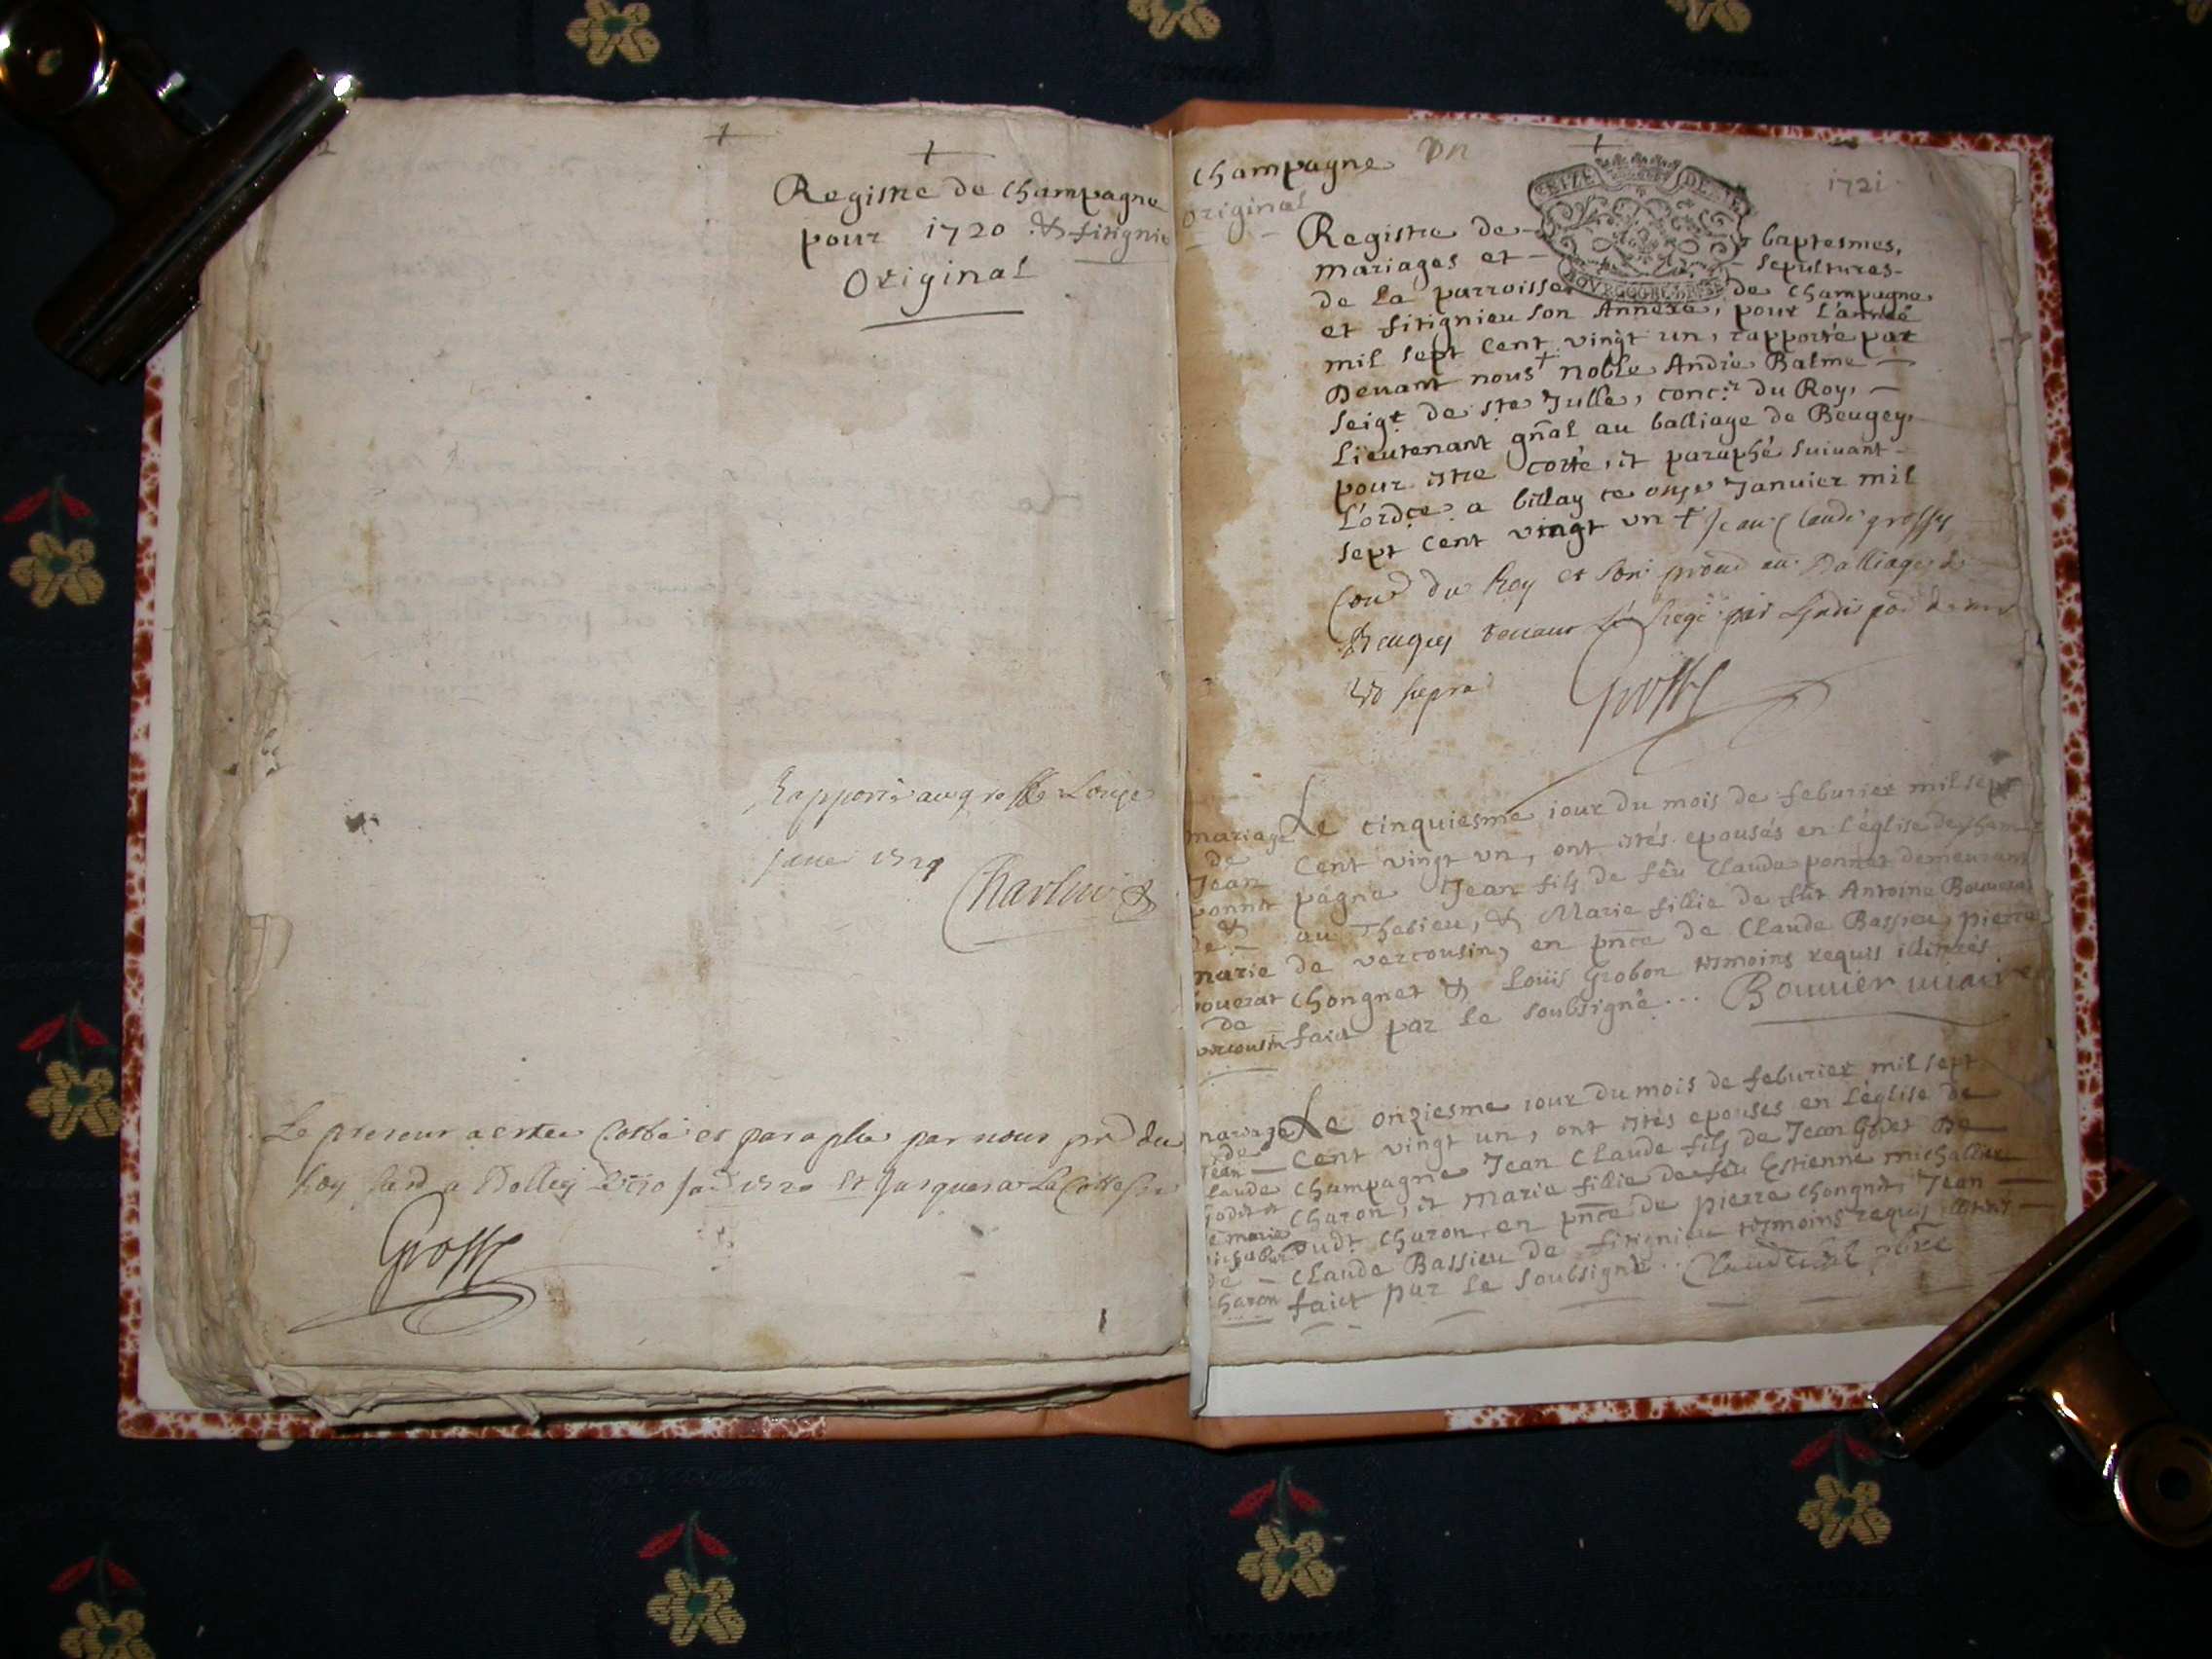 Registre de Champagne
pour 1720 & fitignie
Original
Rapporté au greffe L'onze
janer 1721
Le present a estée Cotté et paraphée par nous prd du
Roy
Gross
Champagne
1721
original
Registre de baptesmes,
mariages et sepultures
de La parroisse de Champagne
et fitignieu son Annexe, pour L'année
mil sept Cent vingt un, rapporté par
Devant nous + noble André Balme
seigr de ste Julle, concr du Roy,
Lieutenant gñal au balliage de Beugey,
pour estre cotté, et paraphé suivant
L'ordce a billay ce onze Janvier mil
sept Cent vingt un + Jean Claude grossy
Cond du Roy et son au Balliage de
Beugey tenant Le siege par
Vd supra
Gross
Le cinquiesme iour du mois de feburier mil sept
Cent vingt un, ont estés epousés en L'église de Cham
pagne Jean fils de feu Claude ponnet demeurant
au Thesieu, & Marie fillie de fut Antoine Bouuerat
de vercousin, en pñce de Claude Bassieu, pierre
Chongnet & Loüis Grobon tesmoins requis illitérés
faict par le soubsigné... Bouuier
mariage
de
Jean
ponnet
&
de
marie
bouerat
de
vercousin
Le onziesme iour du mois de feburier mil sept
Cent vingt un, ont estés epousés en L'église de
Champagne Jean Claude fils de Jean Godet De
Charon, et Marie fillie de feu Estienne michallier
Dudt Charon, en pñce de pierre Chongnet, Jean
Claude Bassieu de fitignieu tesmoins requis
faict par Le soubsigné..
mariage
de
Jean
Claude
Godet et
de marie
de
Charon